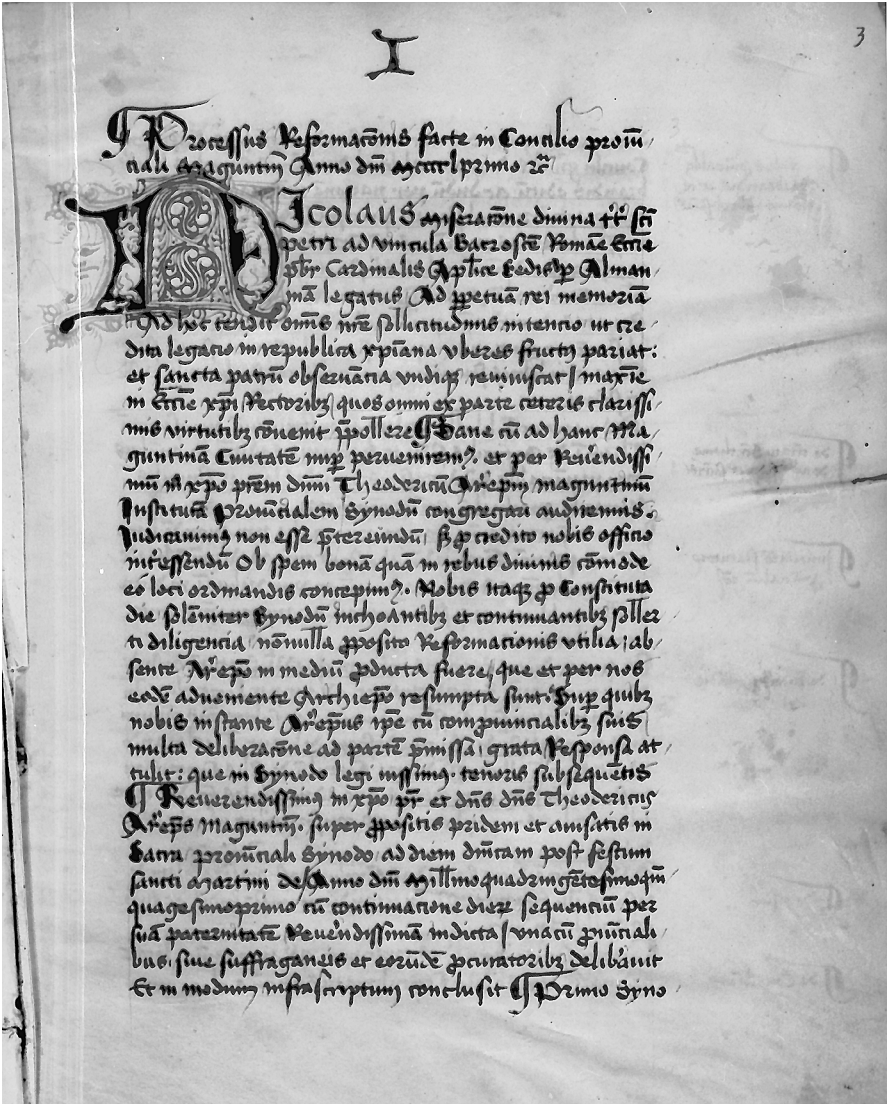 I
3
¶ Processus Reformacõnis facte in Concilio prouĩ
ciali Maguntiñ Anno dñi Mccccl primo ⁊cͣ
Nicolaus miseracõne diuina tt̃ sct̃i
petri ad vincula Sacroscẽ Romãe Ecc̃ie
p̃br Cardinalis Ap̃lice Sedis ꝑ Alman
niã legatus Ad ꝑpetuam rei memoriã
Ad hoc tendit om̃is nr̃e sollicitudinis intencio ut cre
dita legacio in republica xp̃iana vberes fructꝰ pariat:
et sancta patrũ obseruãcia vndiqꝫ reuiuiscat / maxĩe
in Ecc̃ie xp̃i Rectoribꝫ / quos omni ex parte ceteris clarissi
mis virtutibꝫ cõuenit p̃pollere ¶ Sane cũ ad hanc Ma
guntinã Ciuitatẽ nuꝑ perueniremꝰ. et per Reuẽndissi
mũ in xp̃o pr̃em dñm Theodericũ Ar̃epm̃ maguntinũ
Institutã Prouĩcialem Synodũ congregari audiremus.
Iudicauimꝰ non esse p̃tereundũ / sꝫ ꝓ credito nobis officio
int̃essendũ Ob spem bonã quã in rebus diuinis cõmode
eo loci ordinandis concepimꝰ. Nobis itaqꝫ ꝓ Constituta
die solẽniter Synodũ inchoantibꝫ et continuantibꝫ soller
ti diligencia / nõnulla ꝓposito Reformacionis vtilia / ab
sente Ar̃epo in mediũ ꝓducta fuere / que et per nos
eodẽ adueniente Archiep̃o resumpta sunt. Suꝑ quibꝫ
nobis instante Ar̃epus ip̃e cũ comprouincialibꝫ suis
multa deliberacõne ad partẽ p̃missa / grata Responsa at
tulit: que in Synodo legi iussimꝰ. tenoris subsequẽtis
¶ Reuerendissimꝰ in xp̃o pr̃ et dñs dñs Theodericus
Ar̃eps Maguntiñ. super ꝓpositis pridem et auisatis in
Sacra prouĩciali Synodo / ad diem dñicam post festum
sancti Martini de / Anno dñi Mill̃moquadringẽtesimoquĩ
quagesimoprimo cũ continuacione dierꝝ sequenciũ per
suã paternitatẽ Reuẽndissimam indicta / vnacũ ꝓuĩciali
bus / siue suffraganeis et eorũdẽ ꝓcuratoribꝫ delib̃auit
Et in modum infrascriptum conclusit ¶ Primo Syno